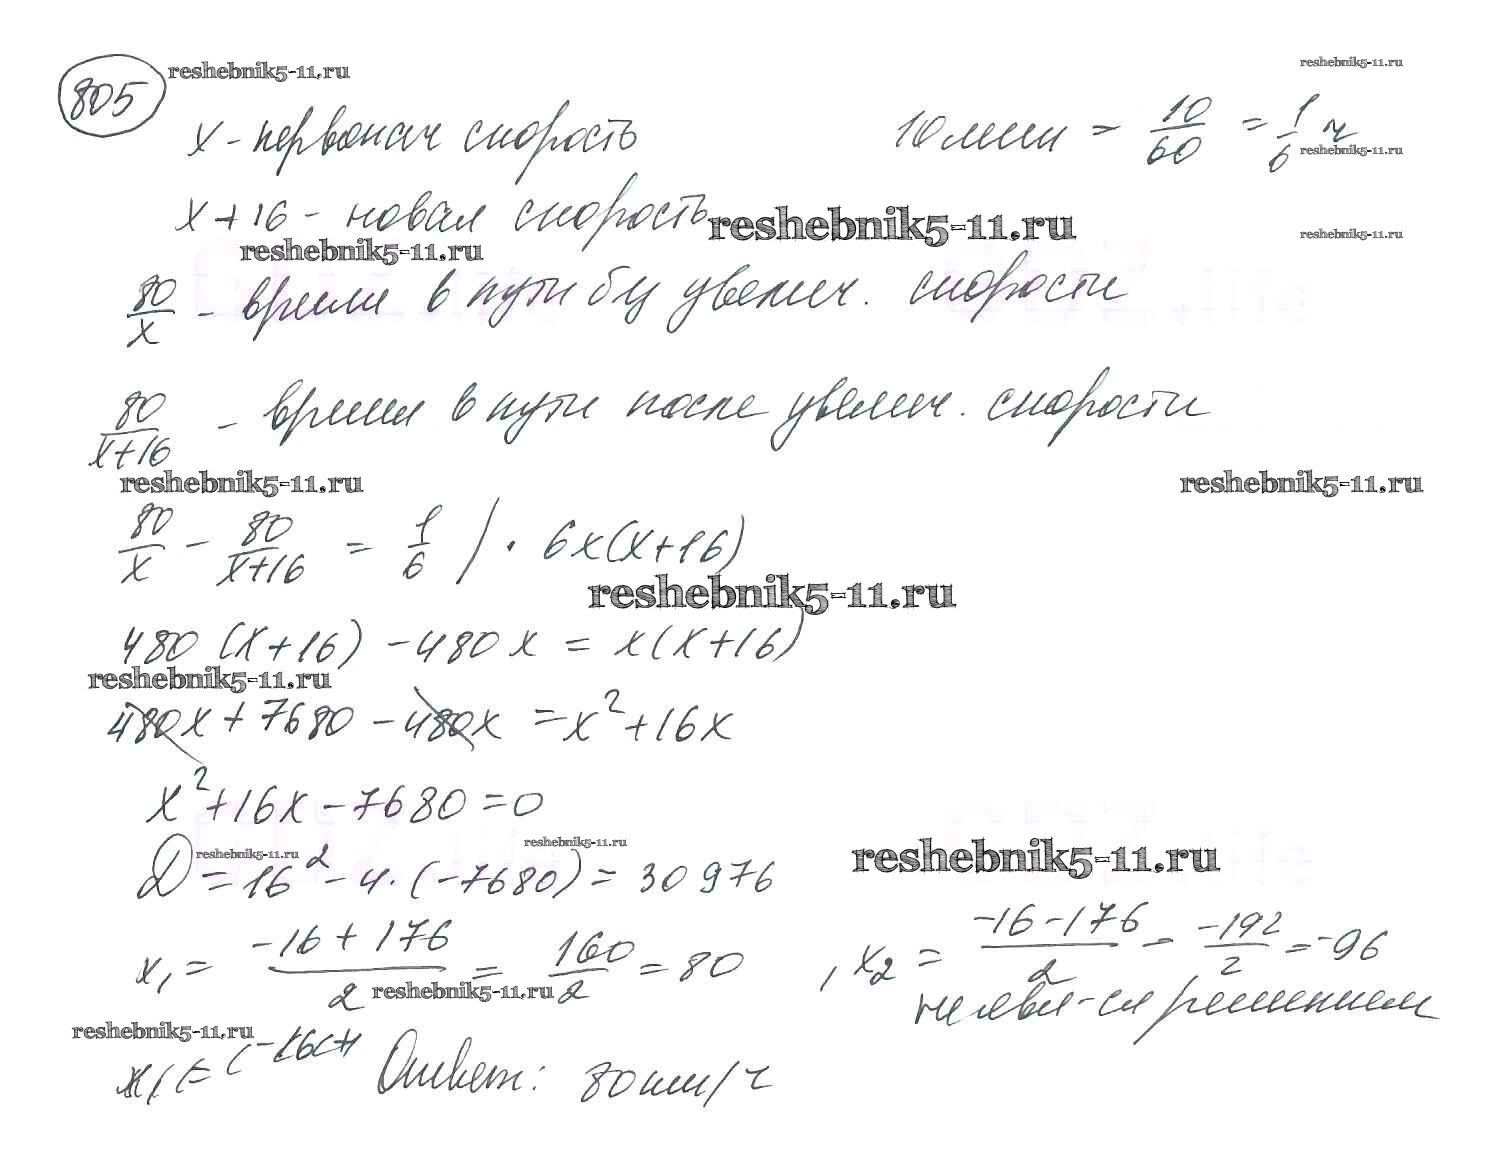 805 reshebnik5-11.ru reshebnik5-11.ru
x - первонач скорость 10 мин = 10/60 = 1/6 ч
reshebnik5-11.ru
x+16 - новая скорость reshebnik5-11.ru reshebnik5-11.ru
reshebnik5-11.ru
80/x - время в пути без увелич. скорости
80/(x+16) - время в пути после увелич. скорости
reshebnik5-11.ru reshebnik5-11.ru
80/x - 80/(x+16) = 1/6 | · 6x(x+16)
reshebnik5-11.ru
480(x+16) - 480x = x(x+16)
reshebnik5-11.ru
480x + 7680 - 480x = x² + 16x
x² + 16x - 7680 = 0
reshebnik5-11.ru reshebnik5-11.ru reshebnik5-11.ru
D = 16² - 4·(-7680) = 30976
x₁ = (-16+176)/2 = 160/2 = 80 , x₂ = (-16-176)/2 = -192/2 = -96
reshebnik5-11.ru не явл-ся решением
reshebnik5-11.ru
Ответ: 80 км/ч